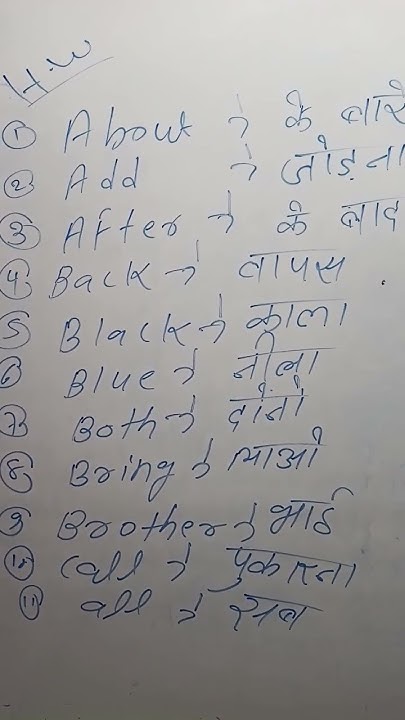 H.W
① About → के बारे
② Add → जोड़ना
③ After → के बाद
④ Back → वापस
⑤ Black → काला
⑥ Blue → नीला
⑦ Both → दोनों
⑧ Bring → लाओ
⑨ Brother → भाई
⑩ Call → पुकारना
⑪ all → सब